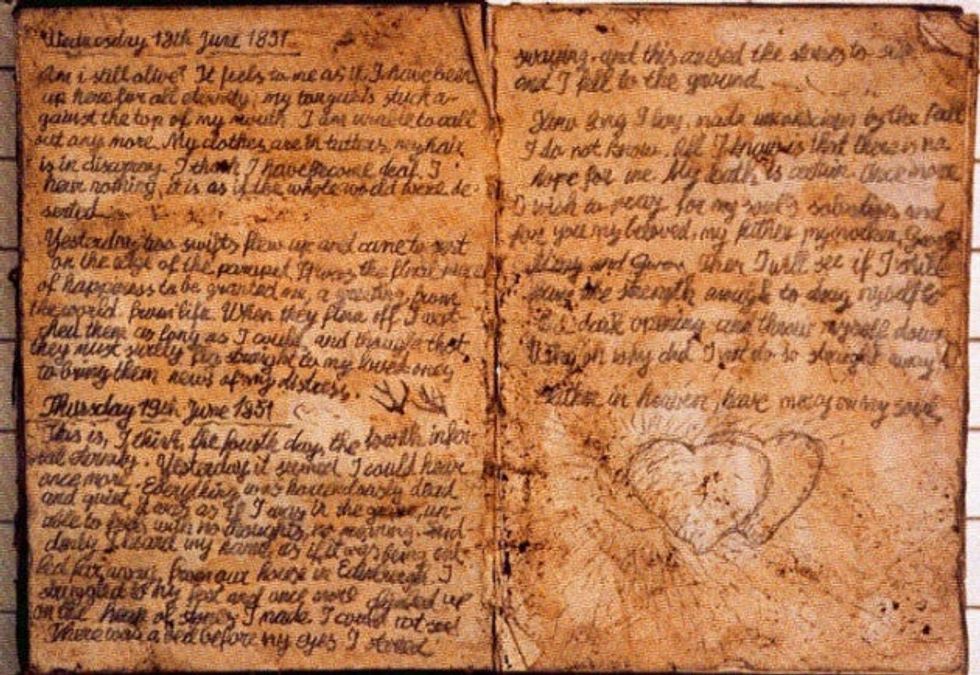 Wednesday 18th June 1851
Am i still alive? It feels to me as if I have been
up here for all eternity, my tongue is stuck a-
gainst the top of my mouth. I am unable to call
out any more. My clothes are in tatters, my hair
is in disarray. I think I have become deaf. I
hear nothing, it is as if the whole world were de-
serted
Yesterday two swifts flew up and came to rest
on the edge of the parapet. It was the final
of happiness to be granted me, a greeting from
the world, from life. When they flew off I wat-
ched them as long as I could, and thought that
they must surely fly straight to my loved ones
to bring them news of my distress.
Thursday 19th June 1851
This is, I think, the fourth day, the fourth infer-
nal eternity. Yesterday it seemed I could hear
once more. Everything was dead
and quiet, it was as if I was in the grave, un-
able to with no thoughts, no meaning. Sud-
denly I heard my name, as if it was being cal-
led far away, from our house in Edinburgh. I
struggled to my feet and once more climbed up
on the heap of stones I made. I could not see!
There was a red before my eyes, I
swaying, and this caused the stones to slip
and I fell to the ground.
How long I lay, made unconscious by the fall
I do not know. All I know is that there is no
hope for me. My death is certain. Once more
I wish to pray for my soul's salvation and
for you my beloved, my father, my mother,
and then I will see if I still
have the strength enough to drag myself to
dark opening and throw myself down.
Why oh why did I not do so straight away!
Father in heaven, have mercy on my soul.